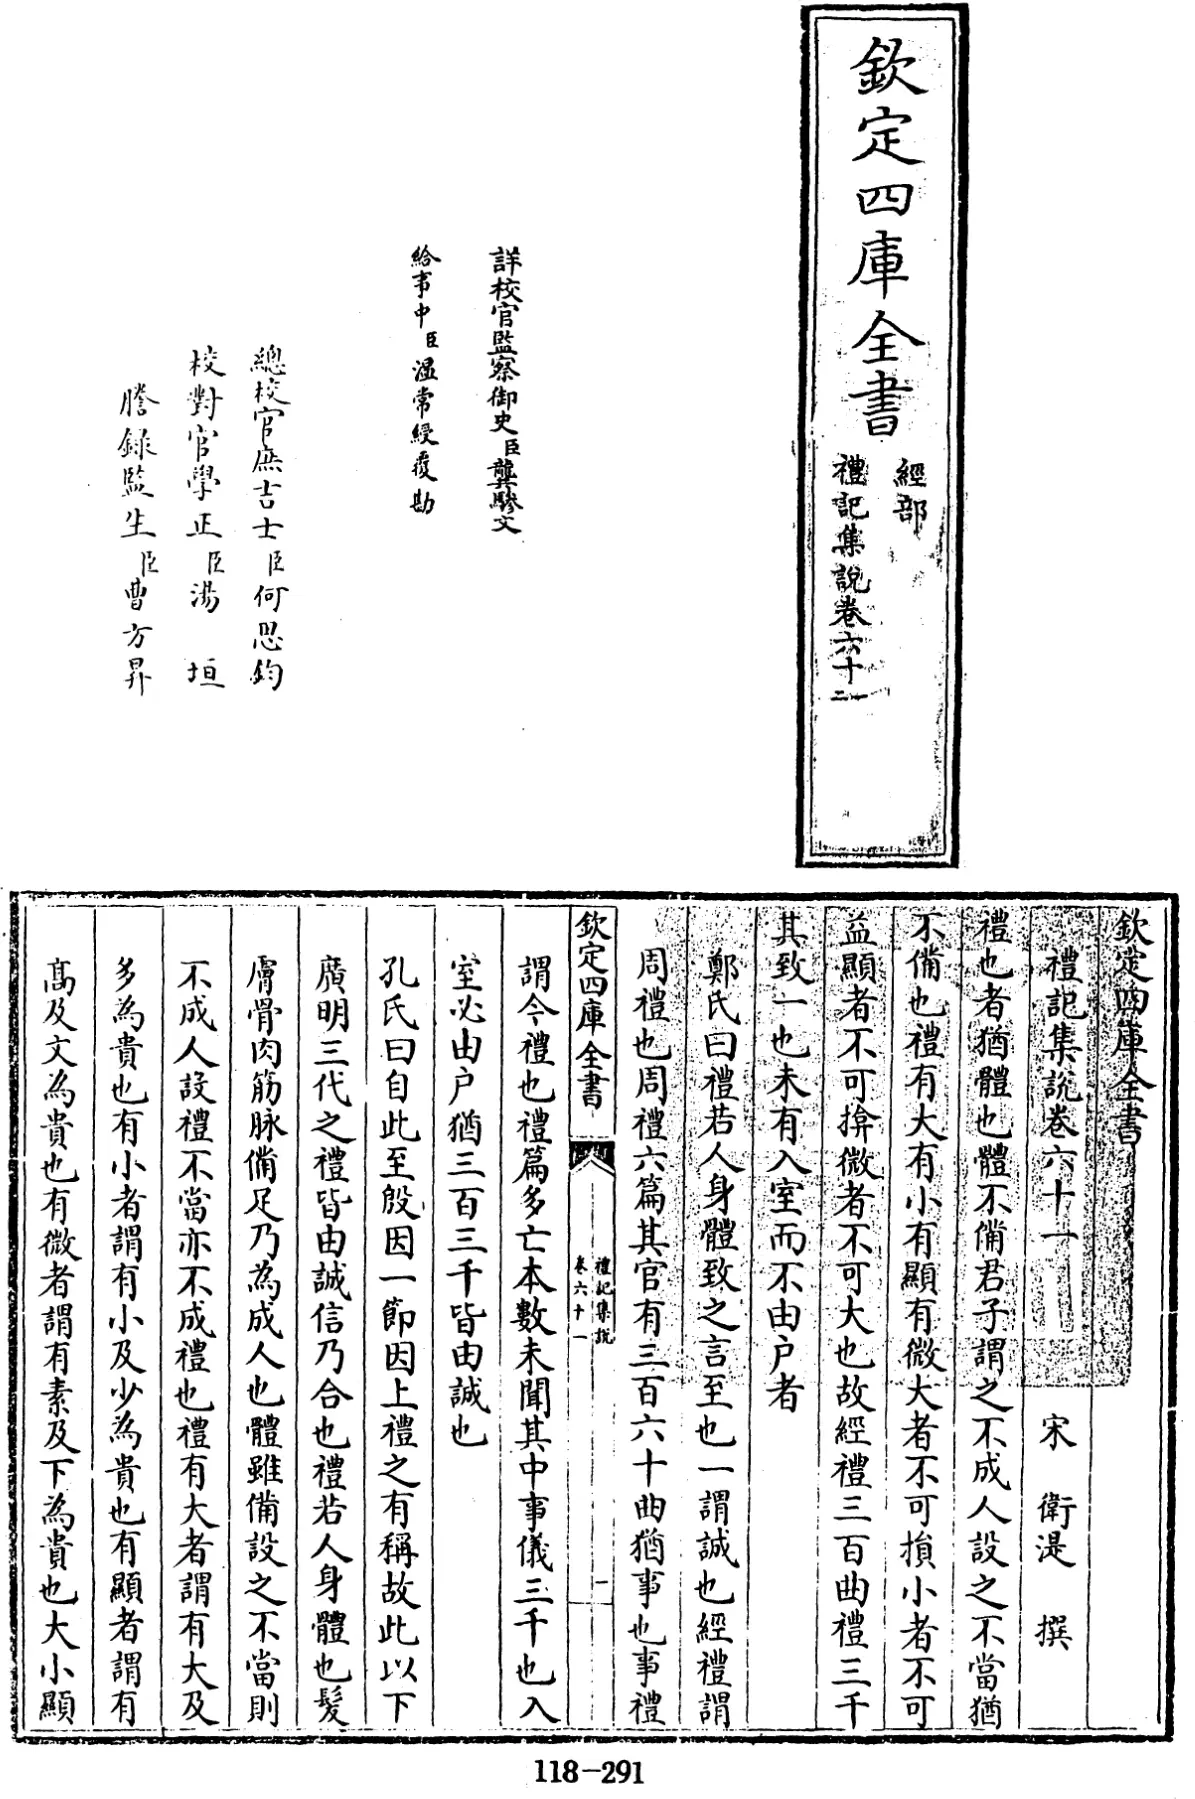 欽定四庫全書
經部
禮記集說卷六十一二
詳校官監察御史臣龔驂文
給事中臣溫常綬覆勘
總校官庶吉士臣何思鈞
校對官學正臣湯垣
謄錄監生臣曹方昇
欽定四庫全書
禮記集說卷六十一
宋 衛湜 撰
禮也者猶體也體不備君子謂之不成人設之不當猶
不備也禮有大有小有顯有微大者不可損小者不可
益顯者不可揜微者不可大也故經禮三百曲禮三千
其致一也未有入室而不由户者
鄭氏曰禮若人身體致之言至也一謂誠也經禮謂
周禮也周禮六篇其官有三百六十曲猶事也事禮
欽定四庫全書
禮記集說
卷六十一
一
謂今禮也禮篇多亡本數未聞其中事儀三千也入
室必由户猶三百三千皆由誠也
孔氏曰自此至殷因一節因上禮之有稱故此以下
廣明三代之禮皆由誠信乃合也禮若人身體也髮
膚骨肉筋脉備足乃為成人也體雖備設之不當則
不成人設禮不當亦不成禮也禮有大者謂有大及
多為貴也有小者謂有小及少為貴也有顯者謂有
高及文為貴也有微者謂有素及下為貴也大小顯
118-291